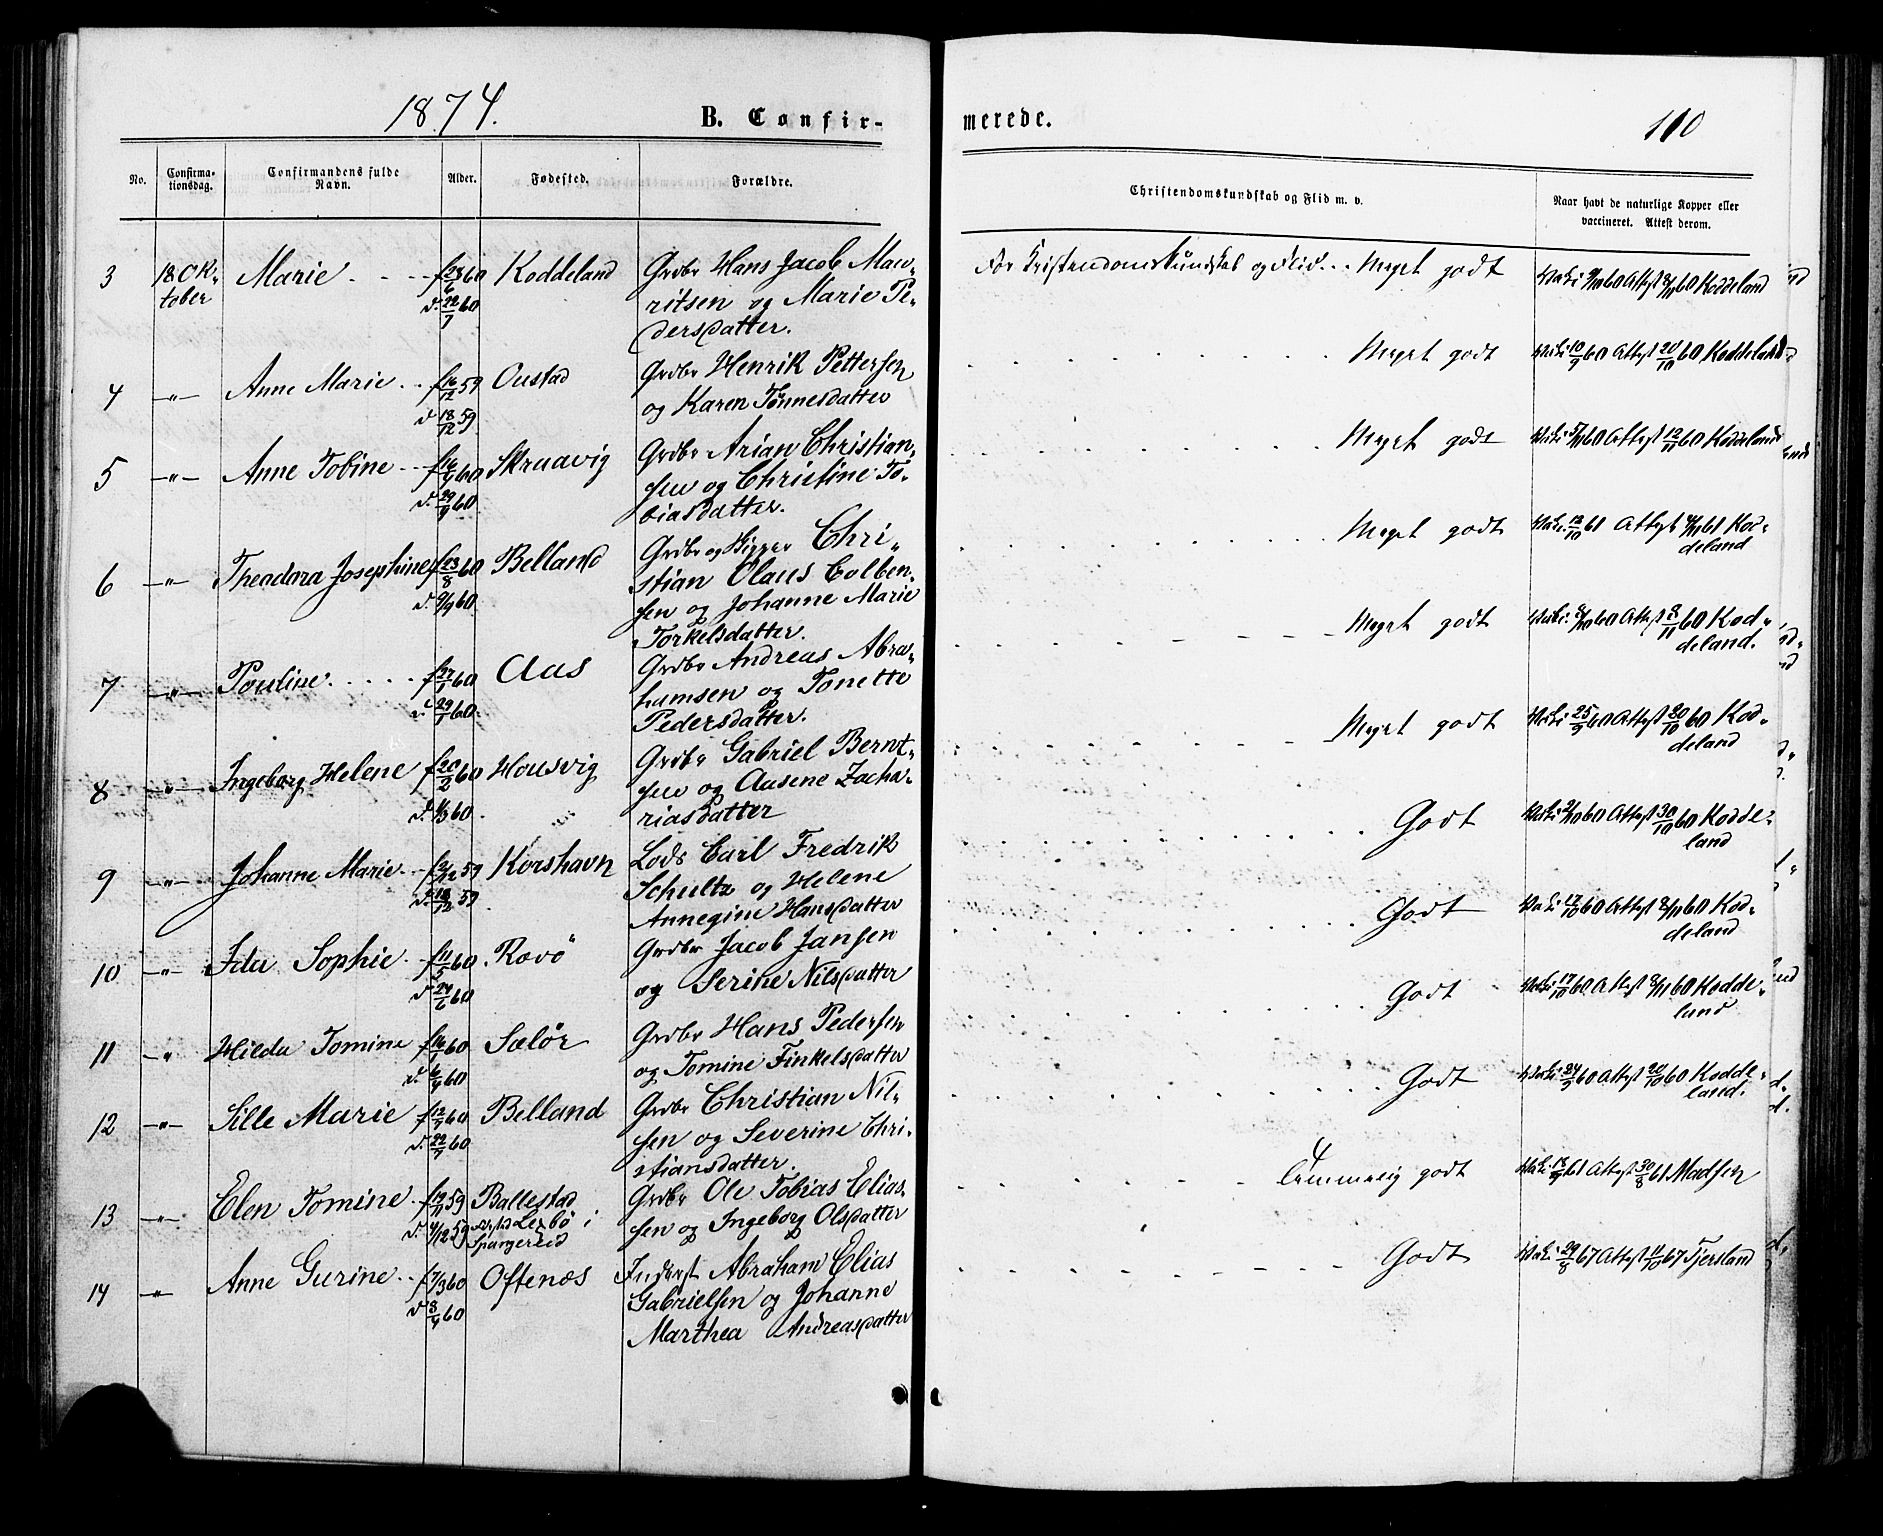 1874.
B. Confir-
merede.
110
No.
Confirma-
tionsdag.
Confirmandens fulde
Navn.
Alder.
Fødested.
Forældre.
Christendomskundskab og Flid m. v.
Naar havt de naturlige Kopper eller
vaccineret. Attest derom.
3 18 Ok- Marie f 23/6 60 Koddeland Grdbr Hans Jacob Mau-
tober d. 22/7 60 ritsen og Marie Pe-
dersdatter.
For Kristendomskundskab og Flid... Meget godt
60 Attest 60 Koddeland
4 -"- Anne Marie f 16/12 59 Oustad Grdbr Henrik Pettersen
d. 18/12 59 og Karen Tønnesdatter
Meget godt
Vaki 10/9 60 Attest 20/10 60 Koddeland
5 -"- Anne Tobine f 60 Skruavig Grdbr Arian Christian-
d. 60 sen og Christine To-
biasdatter.
Meget godt
60 Attest 12/11 60 Koddeland
6 -"- Theodora Josephine f 23/8 60 Belland Grdbr og Bigger Chri-
d. 9/9 60 stian Olaus Colben-
sen og Johanne Marie
Torkelsdatter.
Meget godt
Vaki. 12/10 61 Attest 61 Kod-
deland
7 -"- Pouline f 22/1 60 Aas Grdbr Andreas Abra-
d. 29/1 60 hamsen og Tonette
Pedersdatter.
Meget godt
60 Attest 8/11 60 Kod-
deland.
8 -"- Ingeborg Helene f 20/2 60 Housvig Grdbr Gabriel Bernt-
d. 4/3 60 sen og Aasene Zacha-
riasdatter
Meget godt
Vaki 25/9 60 Attest 20/10 60 Kod-
deland
9 -"- Johanne Marie f 59 Korshavn Lods Carl Fredrik
d. 18/12 59 Schultz og Helene
Annegine Hansdatter
Godt
60 Attest 30/10 60 Kodde-
land
10 -"- Ida Sophie f 11/5 60 Ravø Grdbr Jacob Jansen
d 24/6 60 og Serine Nilsdatter
Godt
Vaki 17/10 60 Attest 60 Kod-
deland
11 -" Hilda Tomine f 16/1 60 Sælør Grdbr Hans Pedersen
d. 60 og Tomine Finkelsdatter
Godt
Vaki 17/10 60 Attest 60 Kodde-
land
12 -"- Sille Marie f 60 Belland Grdbr Christian Nil-
d. 60 sen og Severine Chri-
stiansdatter.
Godt
Vaki 24/9 60 Attest 20/10 60 Kodde-
land.
13 -"- Elen Tomine f 59 Ballestad Grdbr Ole Tobias Elias-
d. 4/12 59 Lerbø i sen og Ingeborg Olsdatter
Spangereid
4
Temmelig godt
61 Attest 30/8 61 Madsen
14 -"- Anne Gurine f 7/3 60 Oftenæs Inderst Abraham Elias
d 8/4 60 Gabrielsen og Johanne
Marthea Andreasdatter
Godt
Vaki 29/8 67 Attest 11/10 67 Tjersland